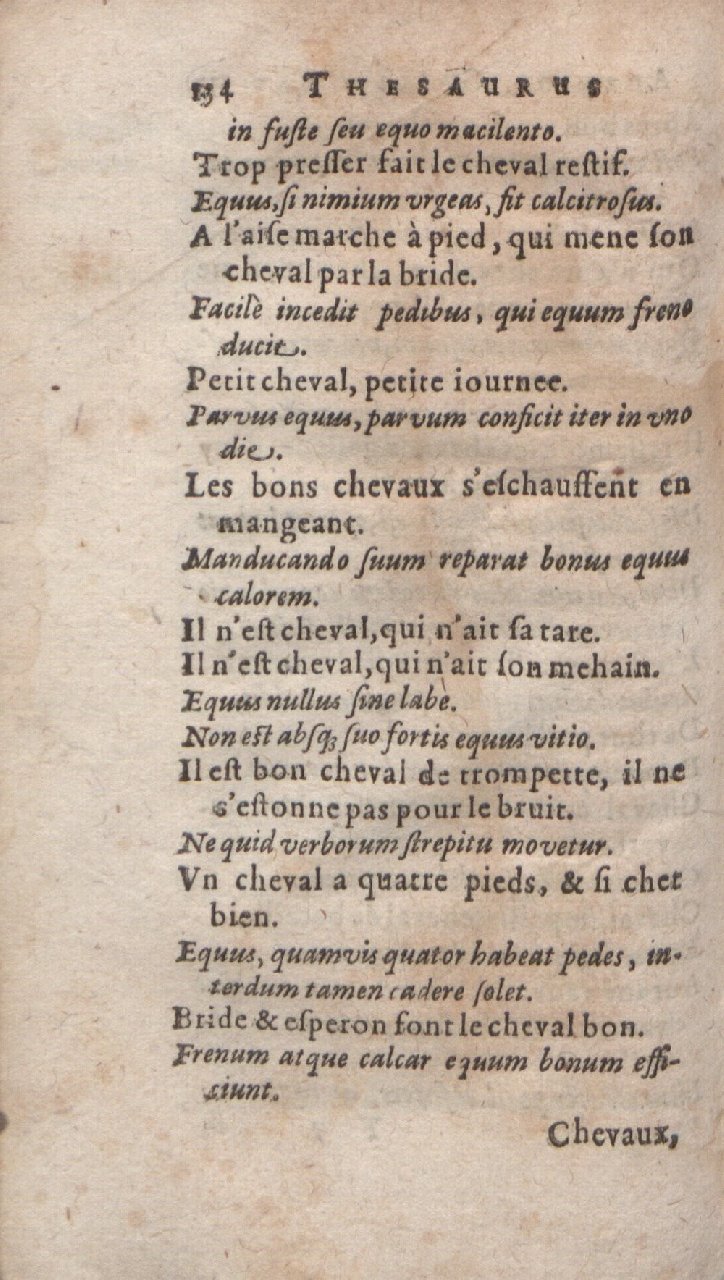 134 THESAURUS
in fuſte ſeu equo macilento.
Trop preſſer fait le cheval reſtif.
Equus, ſi nimium vrgeas, fit calcitroſus.
A l'aiſe marche à pied, qui mene ſon
cheval par la bride.
Facilè incedit pedibus, qui equum freno
ducit.
Petit cheval, petite iournee.
Parvus equus, parvum conficit iter in vno
die.
Les bons chevaux s'eſchauffent en
mangeant.
Manducando ſuum reparat bonus equus
calorem.
Il n'eſt cheval, qui n'ait ſa tare.
Il n'eſt cheval, qui n'ait ſon mehain.
Equus nullus ſine labe.
Non est abſq; ſuo fortis equus vitio.
Il eſt bon cheval de trompette, il ne
s'eſtonne pas pour le bruit.
Ne quid verborum ſtrepitu movetur.
Vn cheval a quatre pieds, & ſi chet
bien.
Equus, quamvis quator habeat pedes, in-
terdum tamen cadere ſolet.
Bride & eſperon font le cheval bon.
Frenum atque calcar equum bonum effi-
ciunt.
Chevaux,